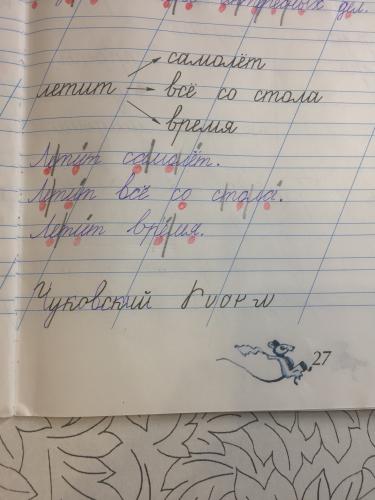 дел.
самолёт
летит → всё со стола
время
Летит самолёт.
Летит всё со стола.
Летит время.
Чуковский
27